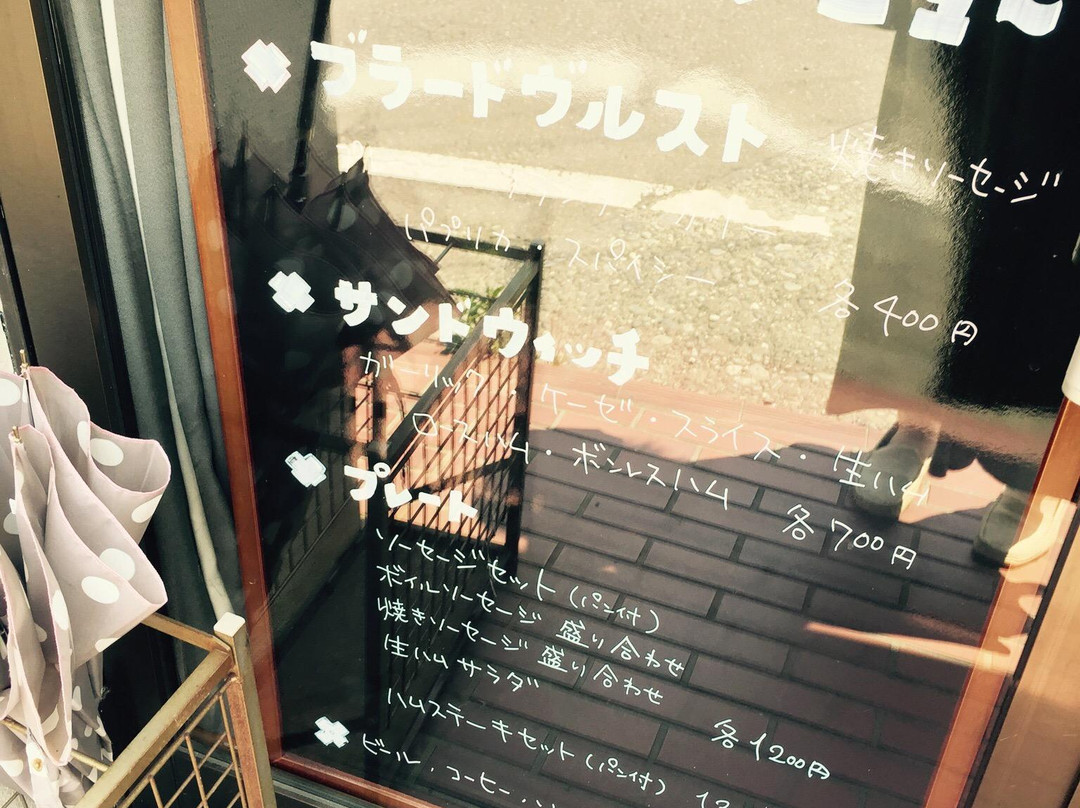 ブラードヴルスト 焼きソーセージ
パプリカ・スパイシー 各400円
サンドウィッチ
ガーリック・ケーゼ・スライス・生ハム
ロースハム・ボンレスハム 各700円
プレート
ソーセージセット(パン付)
ボイルソーセージ 盛り合わせ
焼きソーセージ 盛り合わせ
生ハムサラダ 各1200円
ハムステーキセット(パン付)
ビール・コーヒー